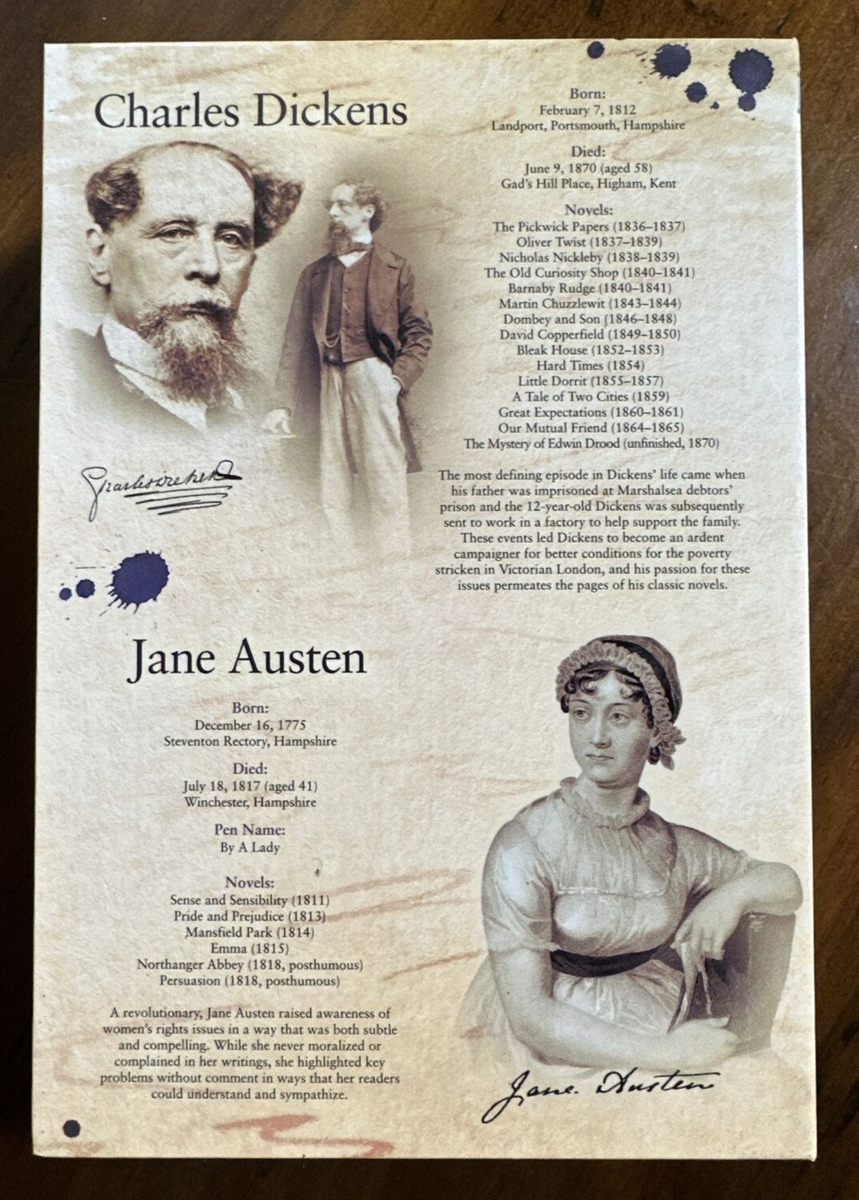 Charles Dickens
Born:
February 7, 1812
Landport, Portsmouth, Hampshire
Died:
June 9, 1870 (aged 58)
Gad's Hill Place, Higham, Kent
Novels:
The Pickwick Papers (1836–1837)
Oliver Twist (1837–1839)
Nicholas Nickleby (1838–1839)
The Old Curiosity Shop (1840–1841)
Barnaby Rudge (1840–1841)
Martin Chuzzlewit (1843–1844)
Dombey and Son (1846–1848)
David Copperfield (1849–1850)
Bleak House (1852–1853)
Hard Times (1854)
Little Dorrit (1855–1857)
A Tale of Two Cities (1859)
Great Expectations (1860–1861)
Our Mutual Friend (1864–1865)
The Mystery of Edwin Drood (unfinished, 1870)
Charles Dickens
The most defining episode in Dickens' life came when
his father was imprisoned at Marshalsea debtors'
prison and the 12-year-old Dickens was subsequently
sent to work in a factory to help support the family.
These events led Dickens to become an ardent
campaigner for better conditions for the poverty
stricken in Victorian London, and his passion for these
issues permeates the pages of his classic novels.
Jane Austen
Born:
December 16, 1775
Steventon Rectory, Hampshire
Died:
July 18, 1817 (aged 41)
Winchester, Hampshire
Pen Name:
By A Lady
Novels:
Sense and Sensibility (1811)
Pride and Prejudice (1813)
Mansfield Park (1814)
Emma (1815)
Northanger Abbey (1818, posthumous)
Persuasion (1818, posthumous)
A revolutionary, Jane Austen raised awareness of
women's rights issues in a way that was both subtle
and compelling. While she never moralized or
complained in her writings, she highlighted key
problems without comment in ways that her readers
could understand and sympathize.
Jane. Austen